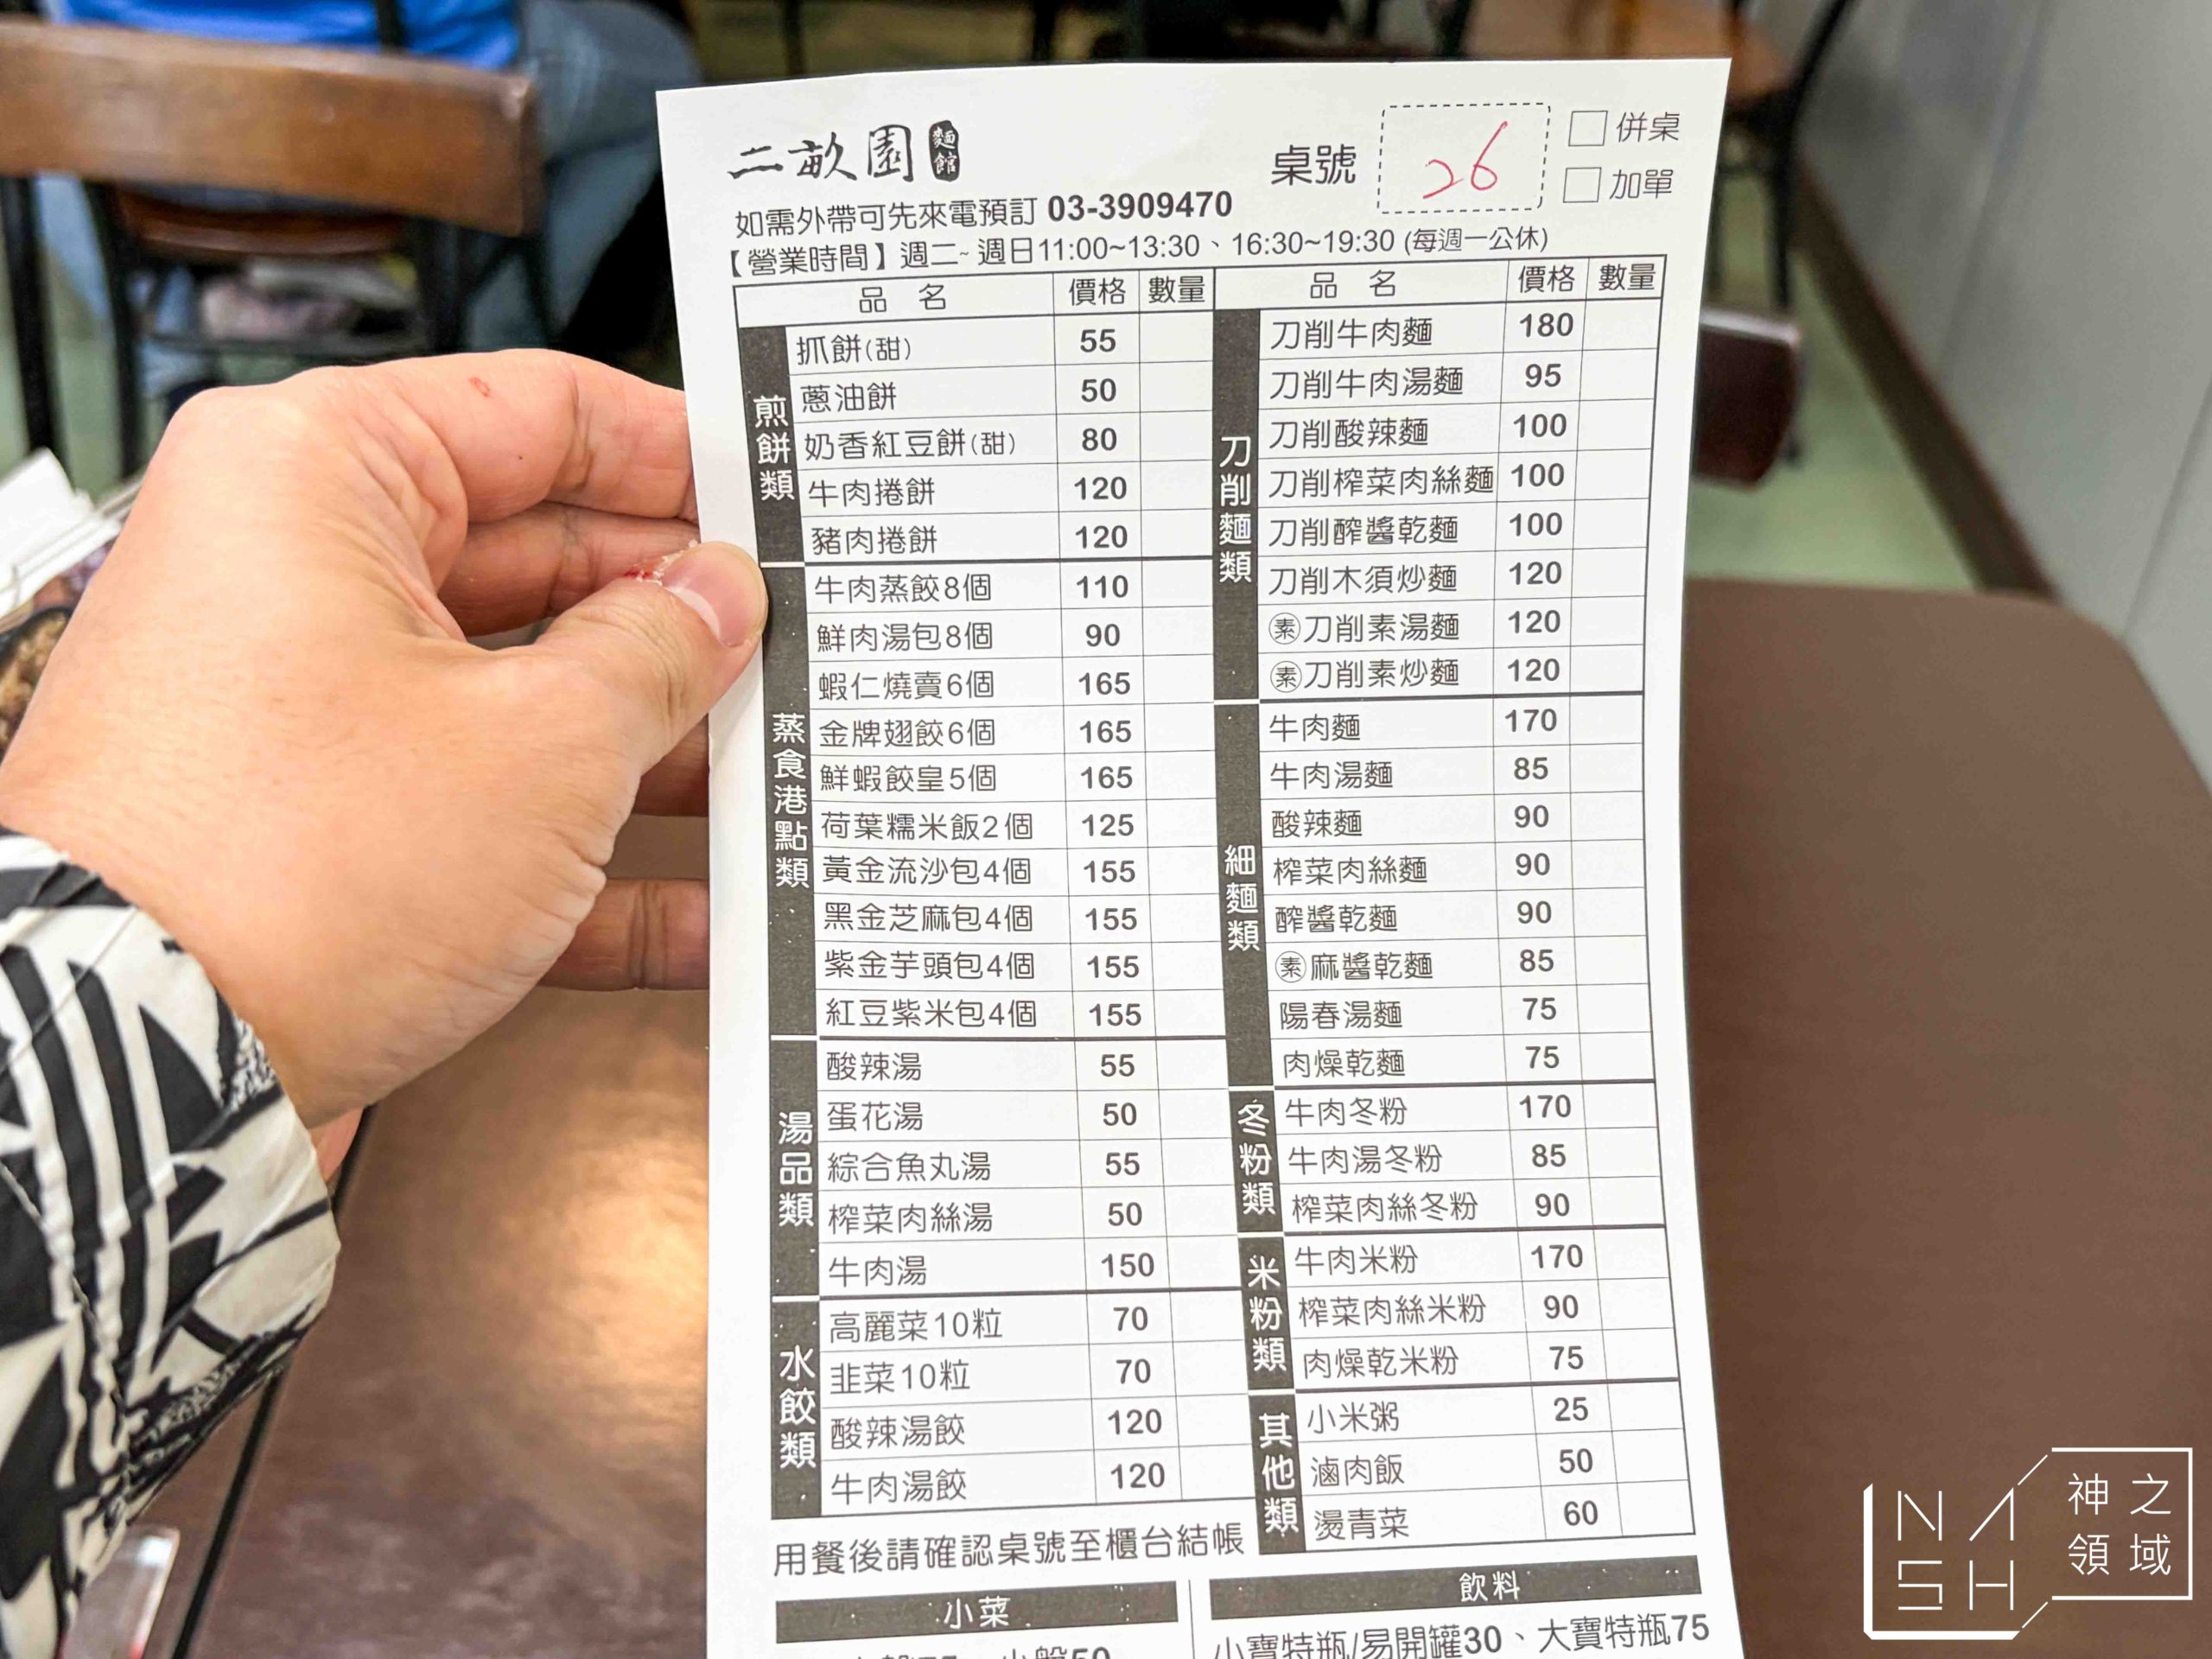 二畝園 麵館
桌號 26 併桌
加單
如需外帶可先來電預訂 03-3909470
【營業時間】週二~週日11:00~13:30、16:30~19:30 (每週一公休)
品名 價格 數量
煎餅類
抓餅(甜) 55
蔥油餅 50
奶香紅豆餅(甜) 80
牛肉捲餅 120
豬肉捲餅 120
蒸食港點類
牛肉蒸餃8個 110
鮮肉湯包8個 90
蝦仁燒賣6個 165
金牌翅餃6個 165
鮮蝦餃皇5個 165
荷葉糯米飯2個 125
黃金流沙包4個 155
黑金芝麻包4個 155
紫金芋頭包4個 155
紅豆紫米包4個 155
湯品類
酸辣湯 55
蛋花湯 50
綜合魚丸湯 55
榨菜肉絲湯 50
牛肉湯 150
水餃類
高麗菜10粒 70
韭菜10粒 70
酸辣湯餃 120
牛肉湯餃 120
品名 價格 數量
刀削麵類
刀削牛肉麵 180
刀削牛肉湯麵 95
刀削酸辣麵 100
刀削榨菜肉絲麵 100
刀削醡醬乾麵 100
刀削木須炒麵 120
素刀削素湯麵 120
素刀削素炒麵 120
細麵類
牛肉麵 170
牛肉湯麵 85
酸辣麵 90
榨菜肉絲麵 90
醡醬乾麵 90
素麻醬乾麵 85
陽春湯麵 75
肉燥乾麵 75
冬粉類
牛肉冬粉 170
牛肉湯冬粉 85
榨菜肉絲冬粉 90
米粉類
牛肉米粉 170
榨菜肉絲米粉 90
肉燥乾米粉 75
其他類
小米粥 25
滷肉飯 50
燙青菜 60
用餐後請確認桌號至櫃台結帳
小菜
飲料
小寶特瓶/易開罐30、大寶特瓶75
NASH
神之領域